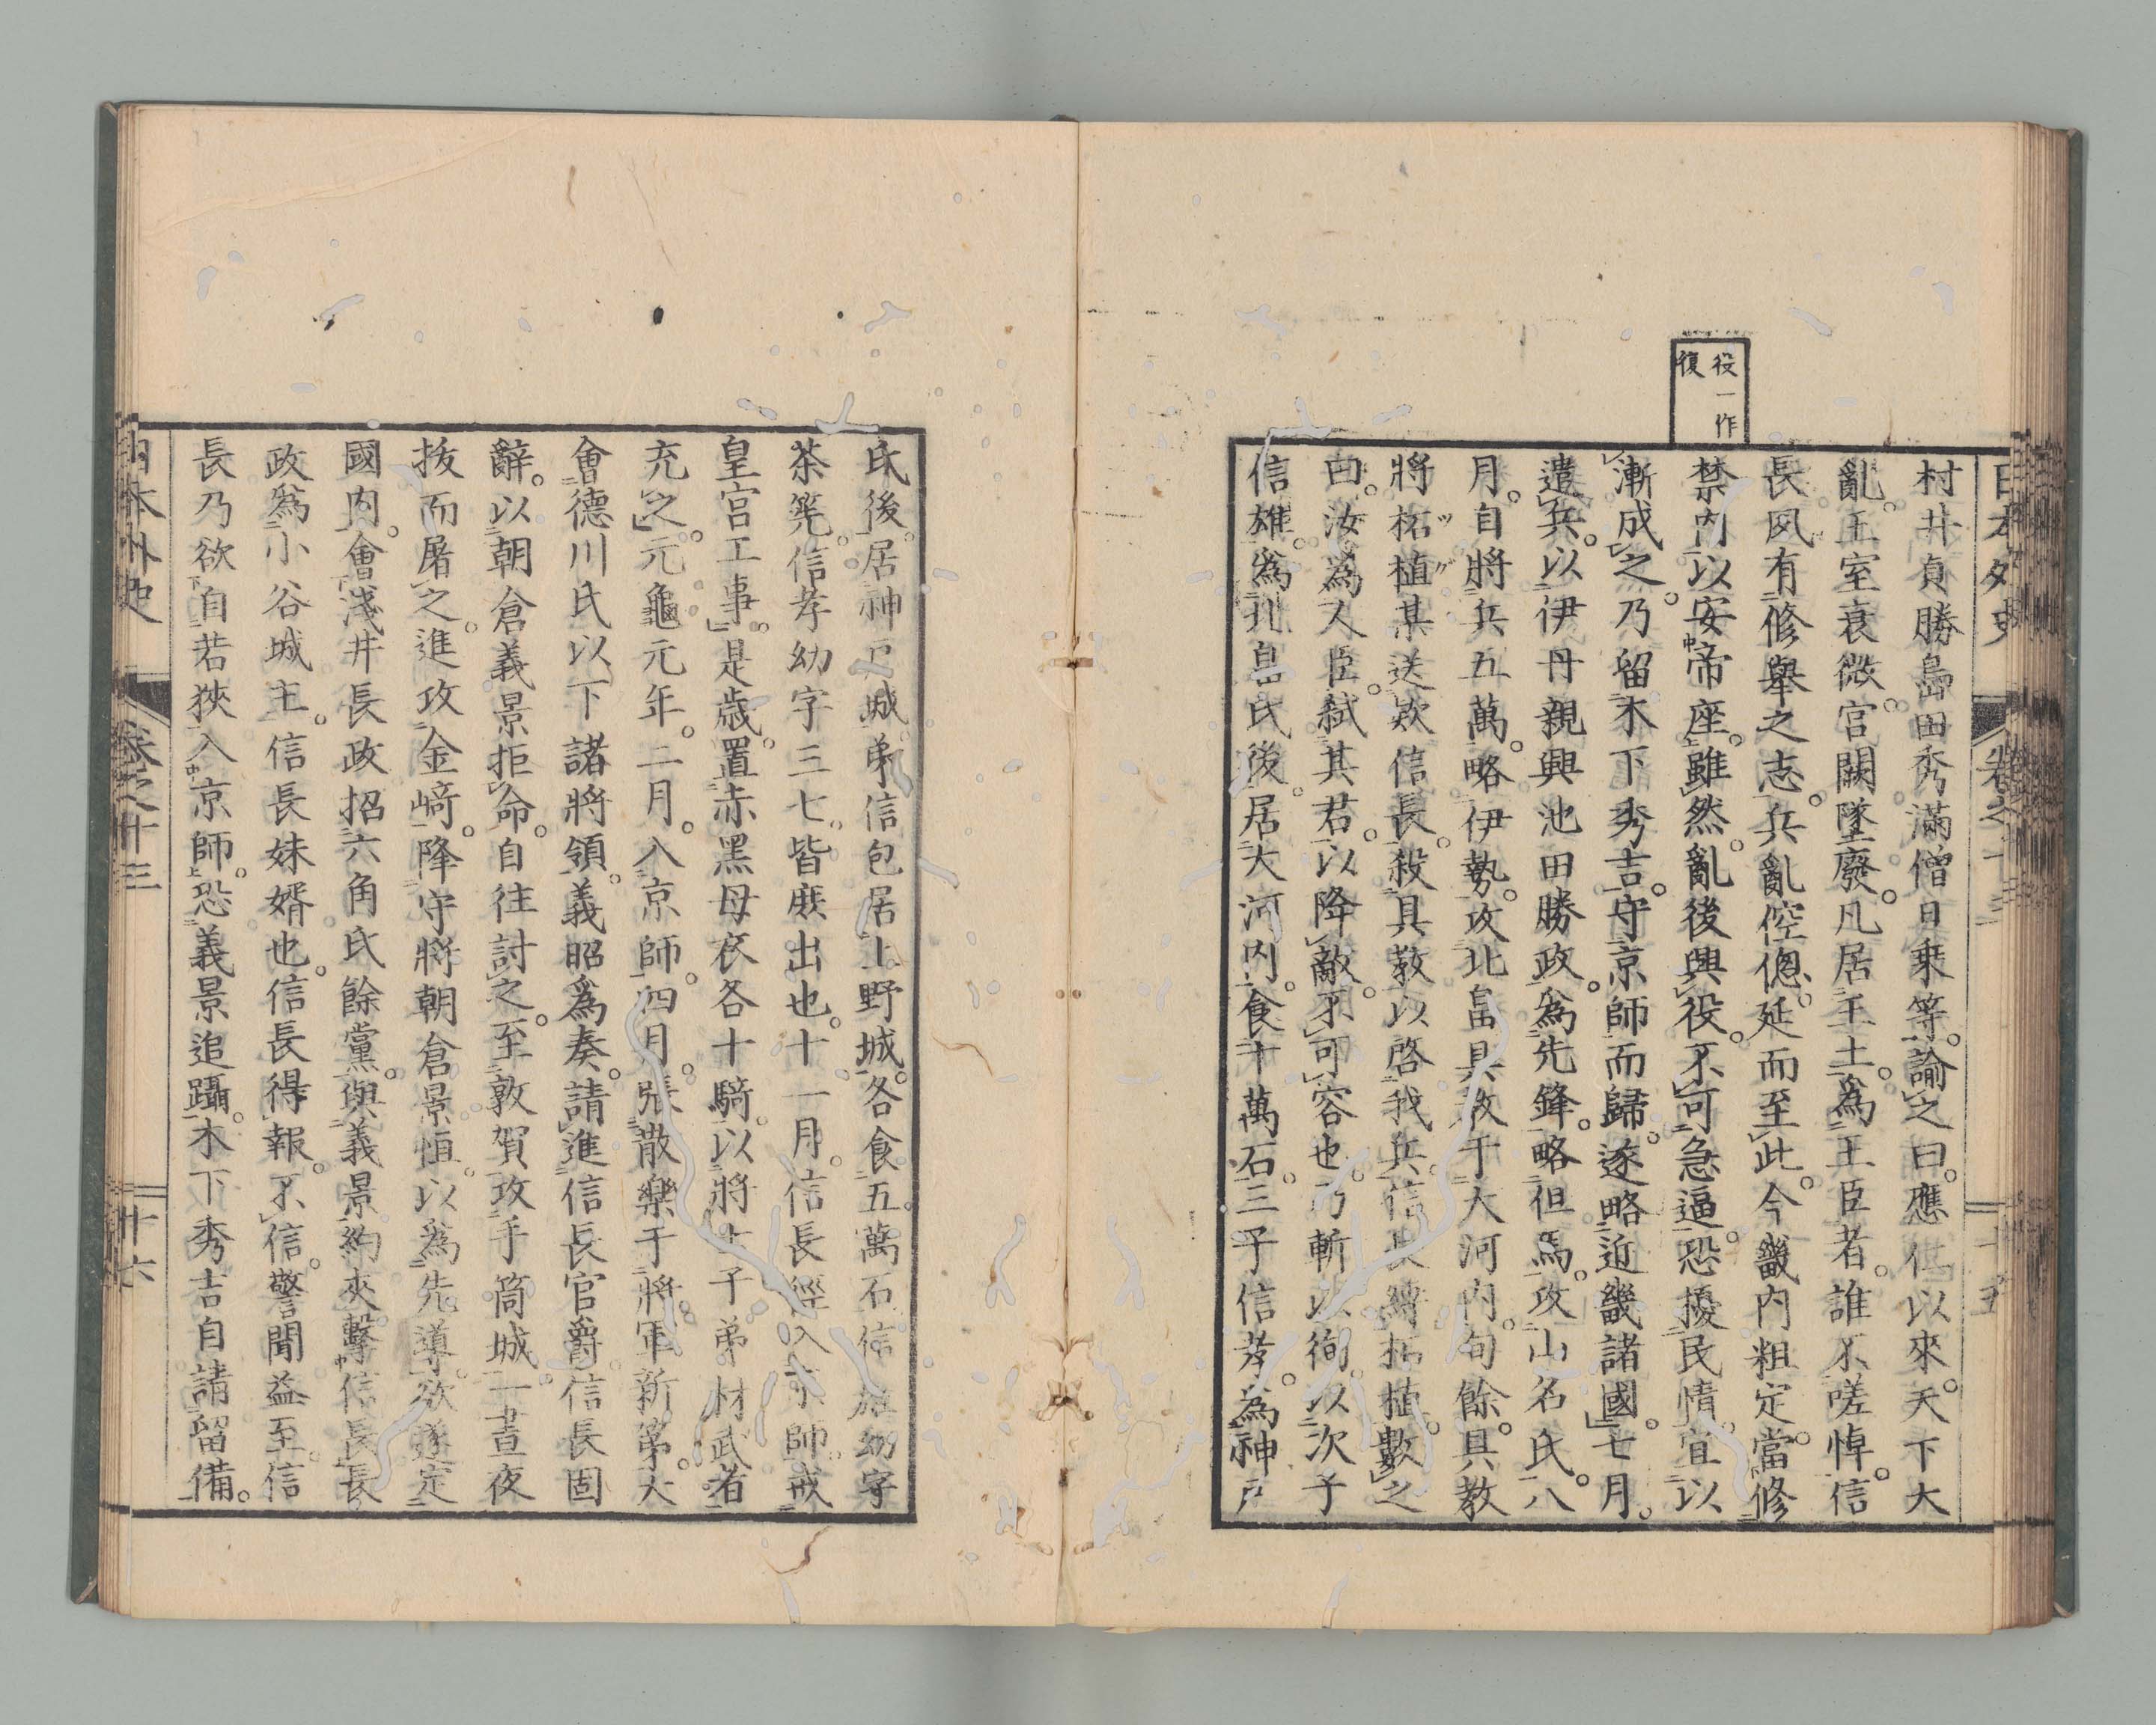 日本外史
卷之十三
十五
役一作
復
村井貞勝島田秀滿僧日乘等。諭之曰。應仁以來。天下大
亂。王室衰微。宮闕墜廢。凡居王土。爲王臣者。誰不嗟悼。信
長夙有修舉之志。兵亂倥偬。延而至此。今畿內粗定。當修
禁內以安帝座。雖然。亂後興役。不可急逼。恐擾民情。宜以
漸成之。乃留木下秀吉。守京師而歸。遂略近畿諸國。七月。
遣兵。以伊丹親興池田勝政。爲先鋒。略但馬。攻山名氏。八
月。自將兵五萬。略伊勢。攻北畠具教于大河內。旬餘。具教
將柘植某送欵信長。殺具教以啓我兵。信長縛柘植。數之
曰。汝爲人臣。弒其君。以降敵。不可容也。乃斬以徇。以次子
信雄。爲北畠氏後。居大河內。食十萬石。三子信孝。爲神戶
氏後。居神戶城。弟信包居上野城。各食五萬石。信雄幼字
茶筅。信孝幼字三七。皆庶出也。十一月。信長經入京師。戒
皇宮工事。是歲。置赤黑母衣各十騎。以將士子弟材武者
充之。元龜元年。二月。入京師。四月。張散樂于將軍新第。大
會德川氏以下諸將領。義昭爲奏請進信長官爵。信長固
辭。以朝倉義景拒命。自往討之。至敦賀。攻手筒城。一晝夜
拔而屠之。進攻金崎。降守將朝倉景恆。以爲先導。欲遂定
國內。會淺井長政招六角氏餘黨。與義景約夾擊信長。長
政爲小谷城主。信長妹婿也。信長得報。不信。警聞益至。信
長乃欲自若狹入京師。恐義景追躡。木下秀吉自請留備。
日本外史
卷之十三
十六